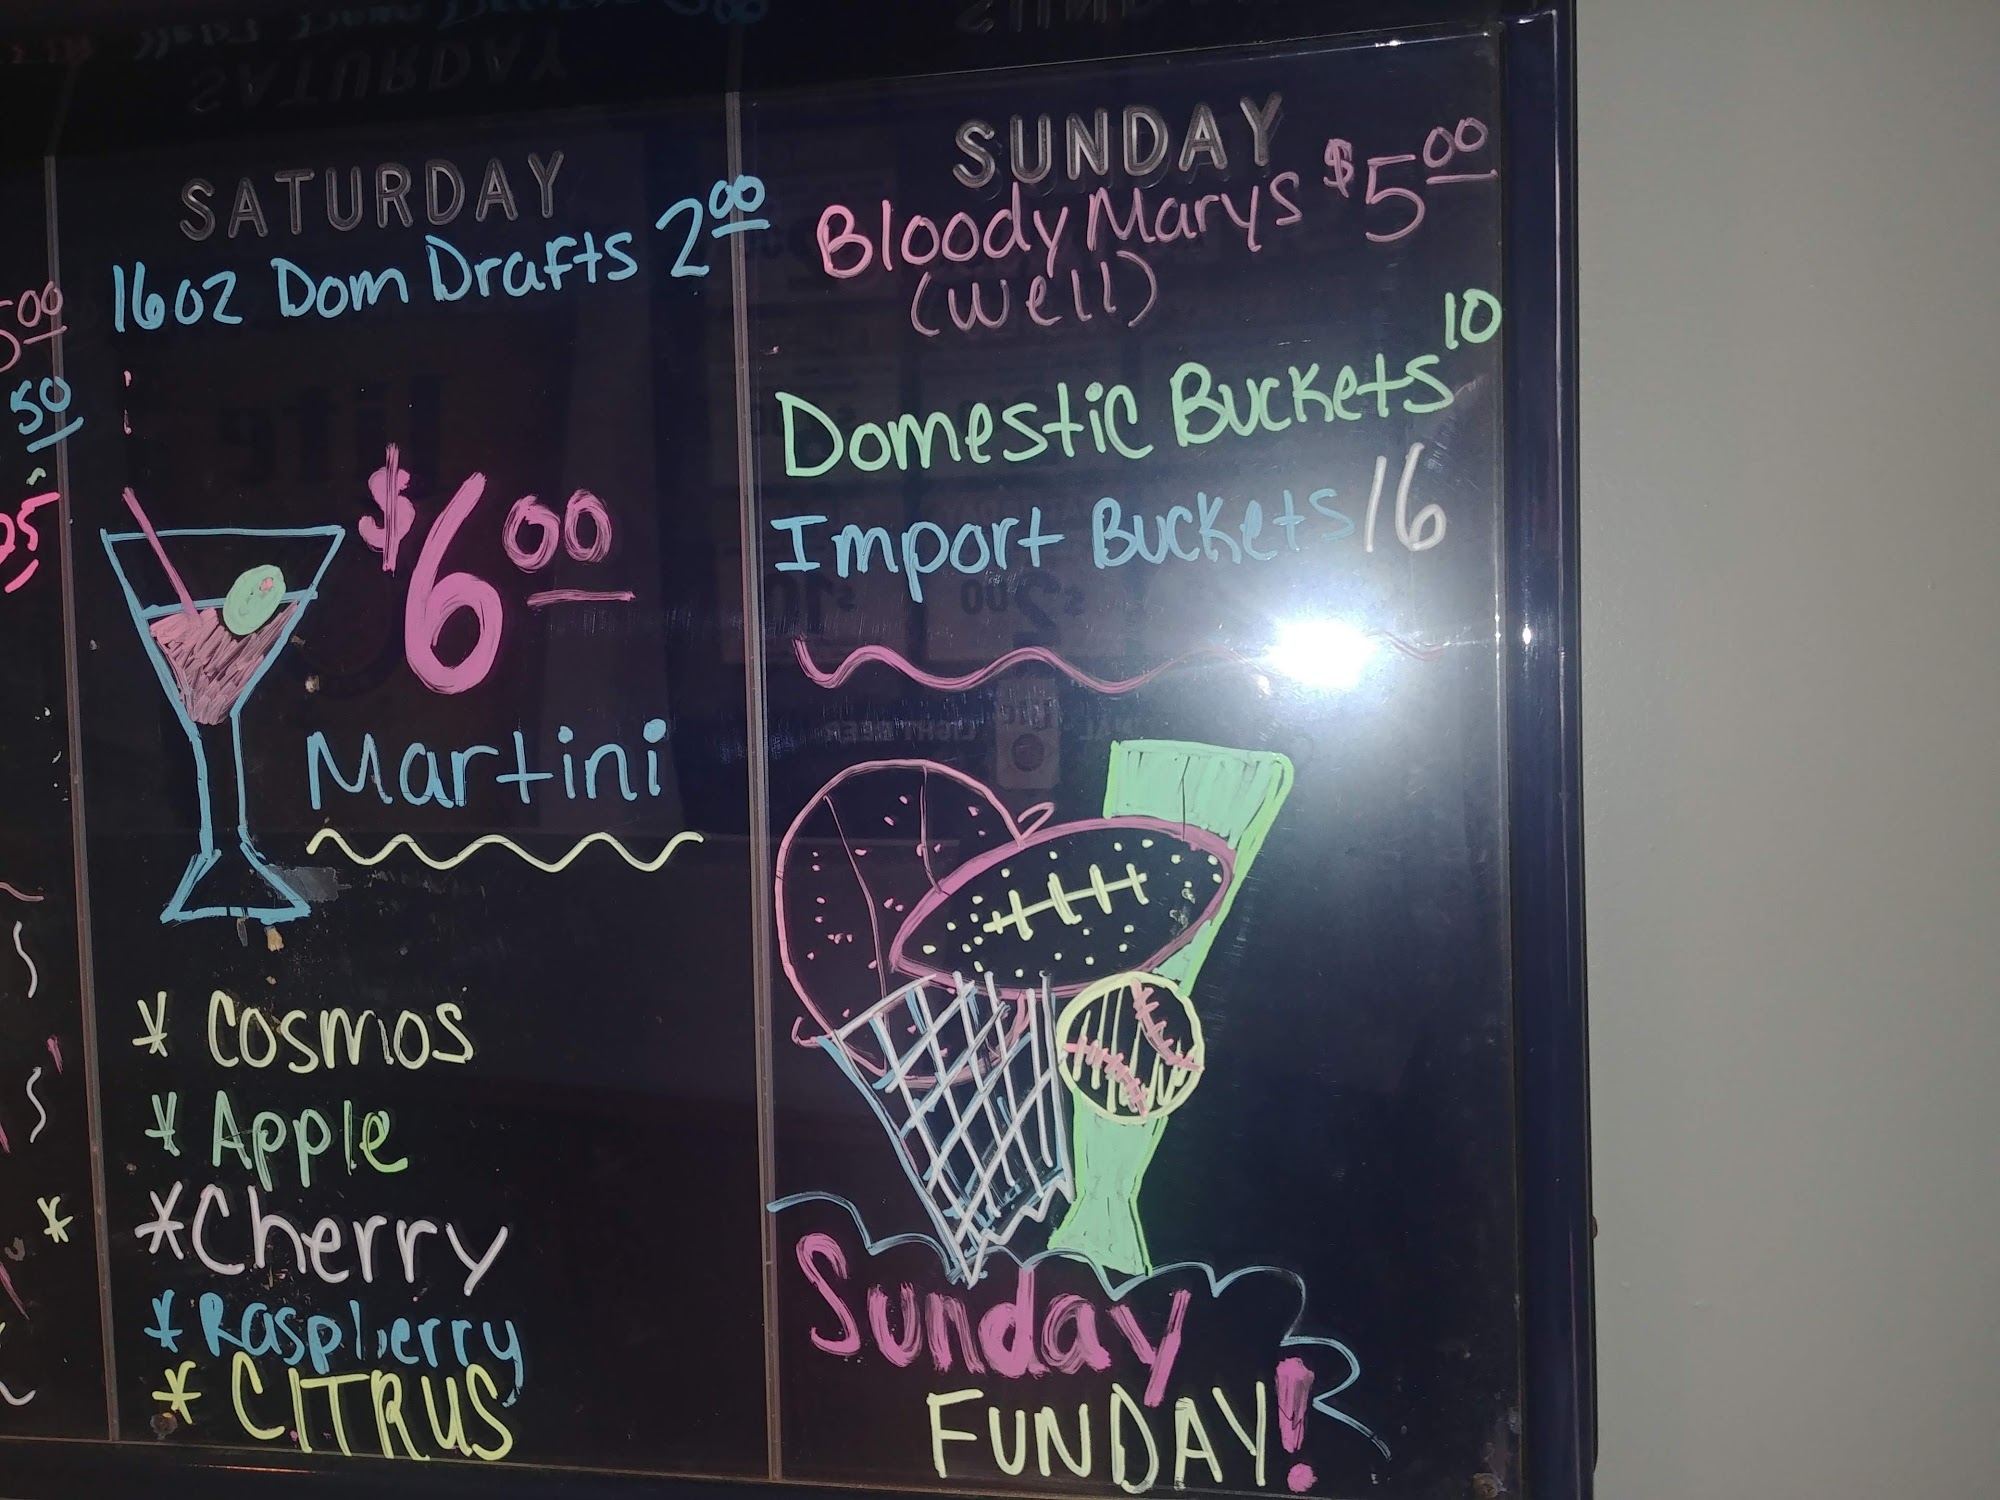 SATURDAY
16oz Dom Drafts 2.00
$6.00
Martini
* Cosmos
* Apple
* Cherry
* Raspberry
* CITRUS
SUNDAY
Bloody Marys $5.00
(Well)
Domestic Buckets 10
Import Buckets 16
Sunday
FUNDAY!
5.00
50